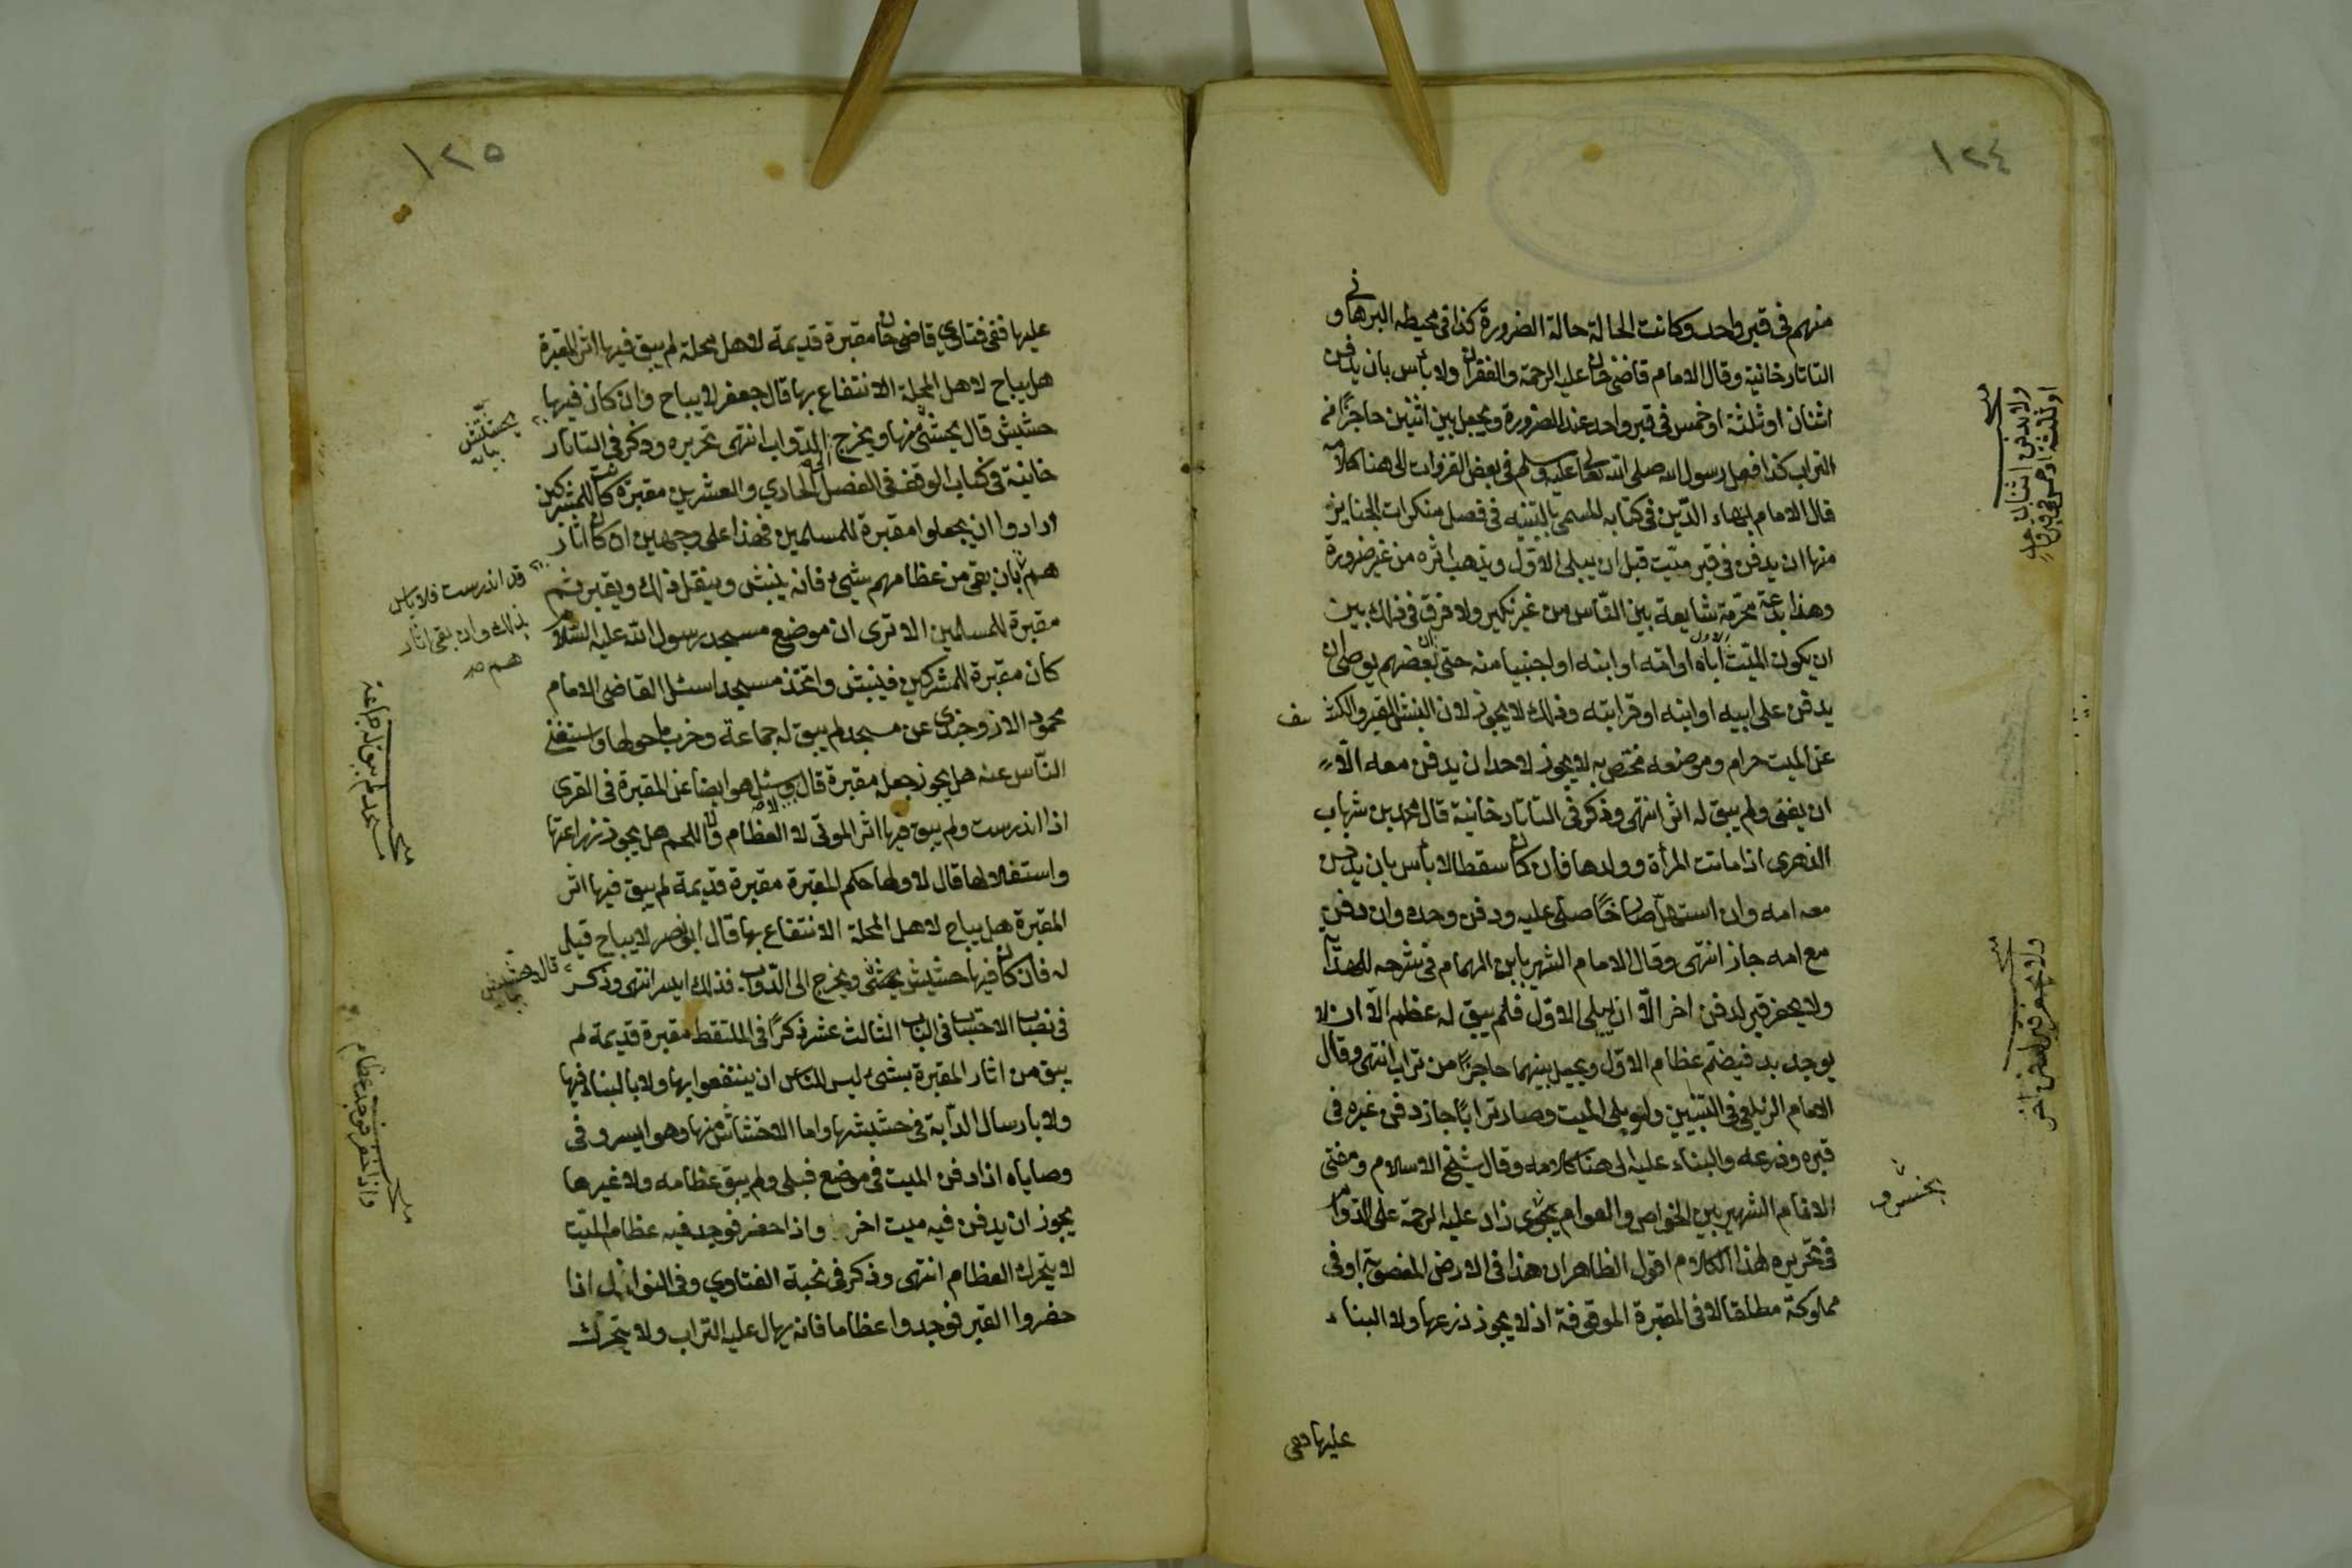 ١٢٤
منهم فى قبر واحد وكانت الحالة حالة الضرورة كذا فى محيطه البرهانى و
التاتارخانية وقال الامام قاضى خان عليه الرحمة والغفران ولا بأس بان يدفن
اثنان او ثلثة او خمس فى قبر واحد عند الضرورة ويجعل بين اثنين حاجزا من
التراب كذا فعل رسول الله صلى الله تعالى عليه وسلم فى بعض الغزوات الى هنا كلامه
قال الامام بهاء الدّين فى كتابه المسمى بالتنبيه فى فصل منكرات الجنايز
منها ان يدفن فى قبر ميّت قبل ان يبلى الاوّل ويذهب اثره من غير ضرورة
وهذا بدعة محرّمة شايعة بين النّاس من غير نكير ولا فرق فى ذلك بين
ان يكون الميّت الاول اباه او امّه او ابنه او اجنبيا منه حتى ان بعضهم يوصى ان
يدفن على ابيه او ابنه او قرابته وذلك لا يجوز لان النبش للقبر والكشف
عن الميت حرام وموضعه مختص به لا يجوز لاحد ان يدفن معه الّا
ان يفنى ولم يبق له اثر انتهى وذكر فى التاتارخانية قال محمد بن شهاب
الزهرى اذا ماتت المرأة وولدها فان كان سقطا لا بأس بان يدفن
معه امه وان استهلّ صارخًا صلى عليه ودفن وحده وان دفن
مع امه جاز انتهى وقال الامام الشهير بابن الهمام فى شرحه للهداية
ولا يحفر قبر لدفن اخر الّا ان يبلى الاوّل فلم يبق له عظم الّا ان لا
يوجد بد فيضمّ عظام الاوّل ويجعل بينهما حاجزًا من تراب انتهى وقال
الامام الزيلعى فى التبيين ولو بلى الميت وصار ترابًا جاز دفن غيره فى
قبره وزرعه والبناء عليه الى هنا كلامه وقال شيخ الاسلام ومفتى
الانام الشهير بين الخواص والعوام بجوى زاده عليه الرحمة على الدوام
فى تحريره لهذا الكلام اقول الظاهر ان هذا فى الارض المغصوبة او فى
مملوكة مطلقا لا فى المقبرة الموقوفة اذ لا يجوز زرعها ولا البناء
عليها ففى
ولا يدفن اثنان
او ثلثة او خمس فى قبر واحد
ولا يحفر قبر لدفن آخر
١٢٥
عليها ففى فتاوى قاضى خان مقبرة قديمة لاهل محلة لم يبق فيها اثر المقبرة
هل يباح لاهل المحلة الانتفاع بها قال جعفر لا يباح وان كان فيها
حشيش قال يحتش منها ويخرج الى الدّواب انتهى تحريره وذكر فى التاتار
خانية فى كتاب الوقف فى الفصل الحادي والعشرين مقبرة كانت للمشركين
ارادوا ان يجعلوا مقبرة للمسلمين فهذا على وجهين ان كان اثار
هم بان بقى من عظامهم شيئ فانه ينبش وينقل ذلك ويقبر ثم
مقبرة للمسلمين الا ترى ان موضع مسجد رسول الله عليه السّلام
كان مقبرة للمشركين فينبش واتخذ مسجدا سئل القاضى الامام
محمود الاوزجندى عن مسجد لم يبق له جماعة وخرب ما حولها واستغنى
النّاس عنه هل يجوز جعله مقبرة قال لا وسئل هو ايضا عن المقبرة فى القرى
اذا اندرست ولم يبق فيها اثر الموتى لا العظام ولا اللحم هل يجوز زراعتها
واستغلالها قال لا ولها حكم المقبرة مقبرة قديمة لم يبق فيها اثر
المقبرة هل يباح لاهل المحلة الانتفاع بها قال ابى نصر لا يباح قيل
له فان كان فيها حشيش يحتش ويخرج الى الدّواب فذلك ايسر انتهى وذكر
فى نصاب الاحتساب فى الباب الثالث عشر ذكر فى الملتقط مقبرة قديمة لم
يبق من اثار المقبرة بشىء ليس للناس ان ينتفعوا بها ولا بالبناء فيها
ولا بارسال الدّابة فى حشيشها واما الاحتشاش منها وهو ايسر وفى
وصاياه اذا دفن الميت فى موضع فبلى ولم يبق عظامه ولا غيرها
يجوز ان يدفن فيه ميت اخر واذا حفر فوجد فيه عظام الميّت
لا يتحرك العظام انتهى وذكر فى نخبة الفتاوي وفى النوازل اذا
حفروا القبر فوجدوا عظاما فانه يهال عليه التراب ولا يتحرك
قد اندرست فلا بأس
بذلك وان بقى اثار
هم صح
مسجد لم يبق له جماعة
واذا حفر فوجد عظام